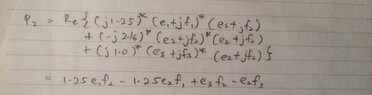 P₂ = Re { (j1.25)* (e₁+jf₁)* (e₂+jf₂)
+ (-j 2.16)* (e₂+jf₂)* (e₂+jf₂)
+ (j 1.0)* (e₃+jf₃)* (e₂+jf₂) }
= 1.25e₁f₂ - 1.25e₂f₁ + e₃f₂ - e₂f₃